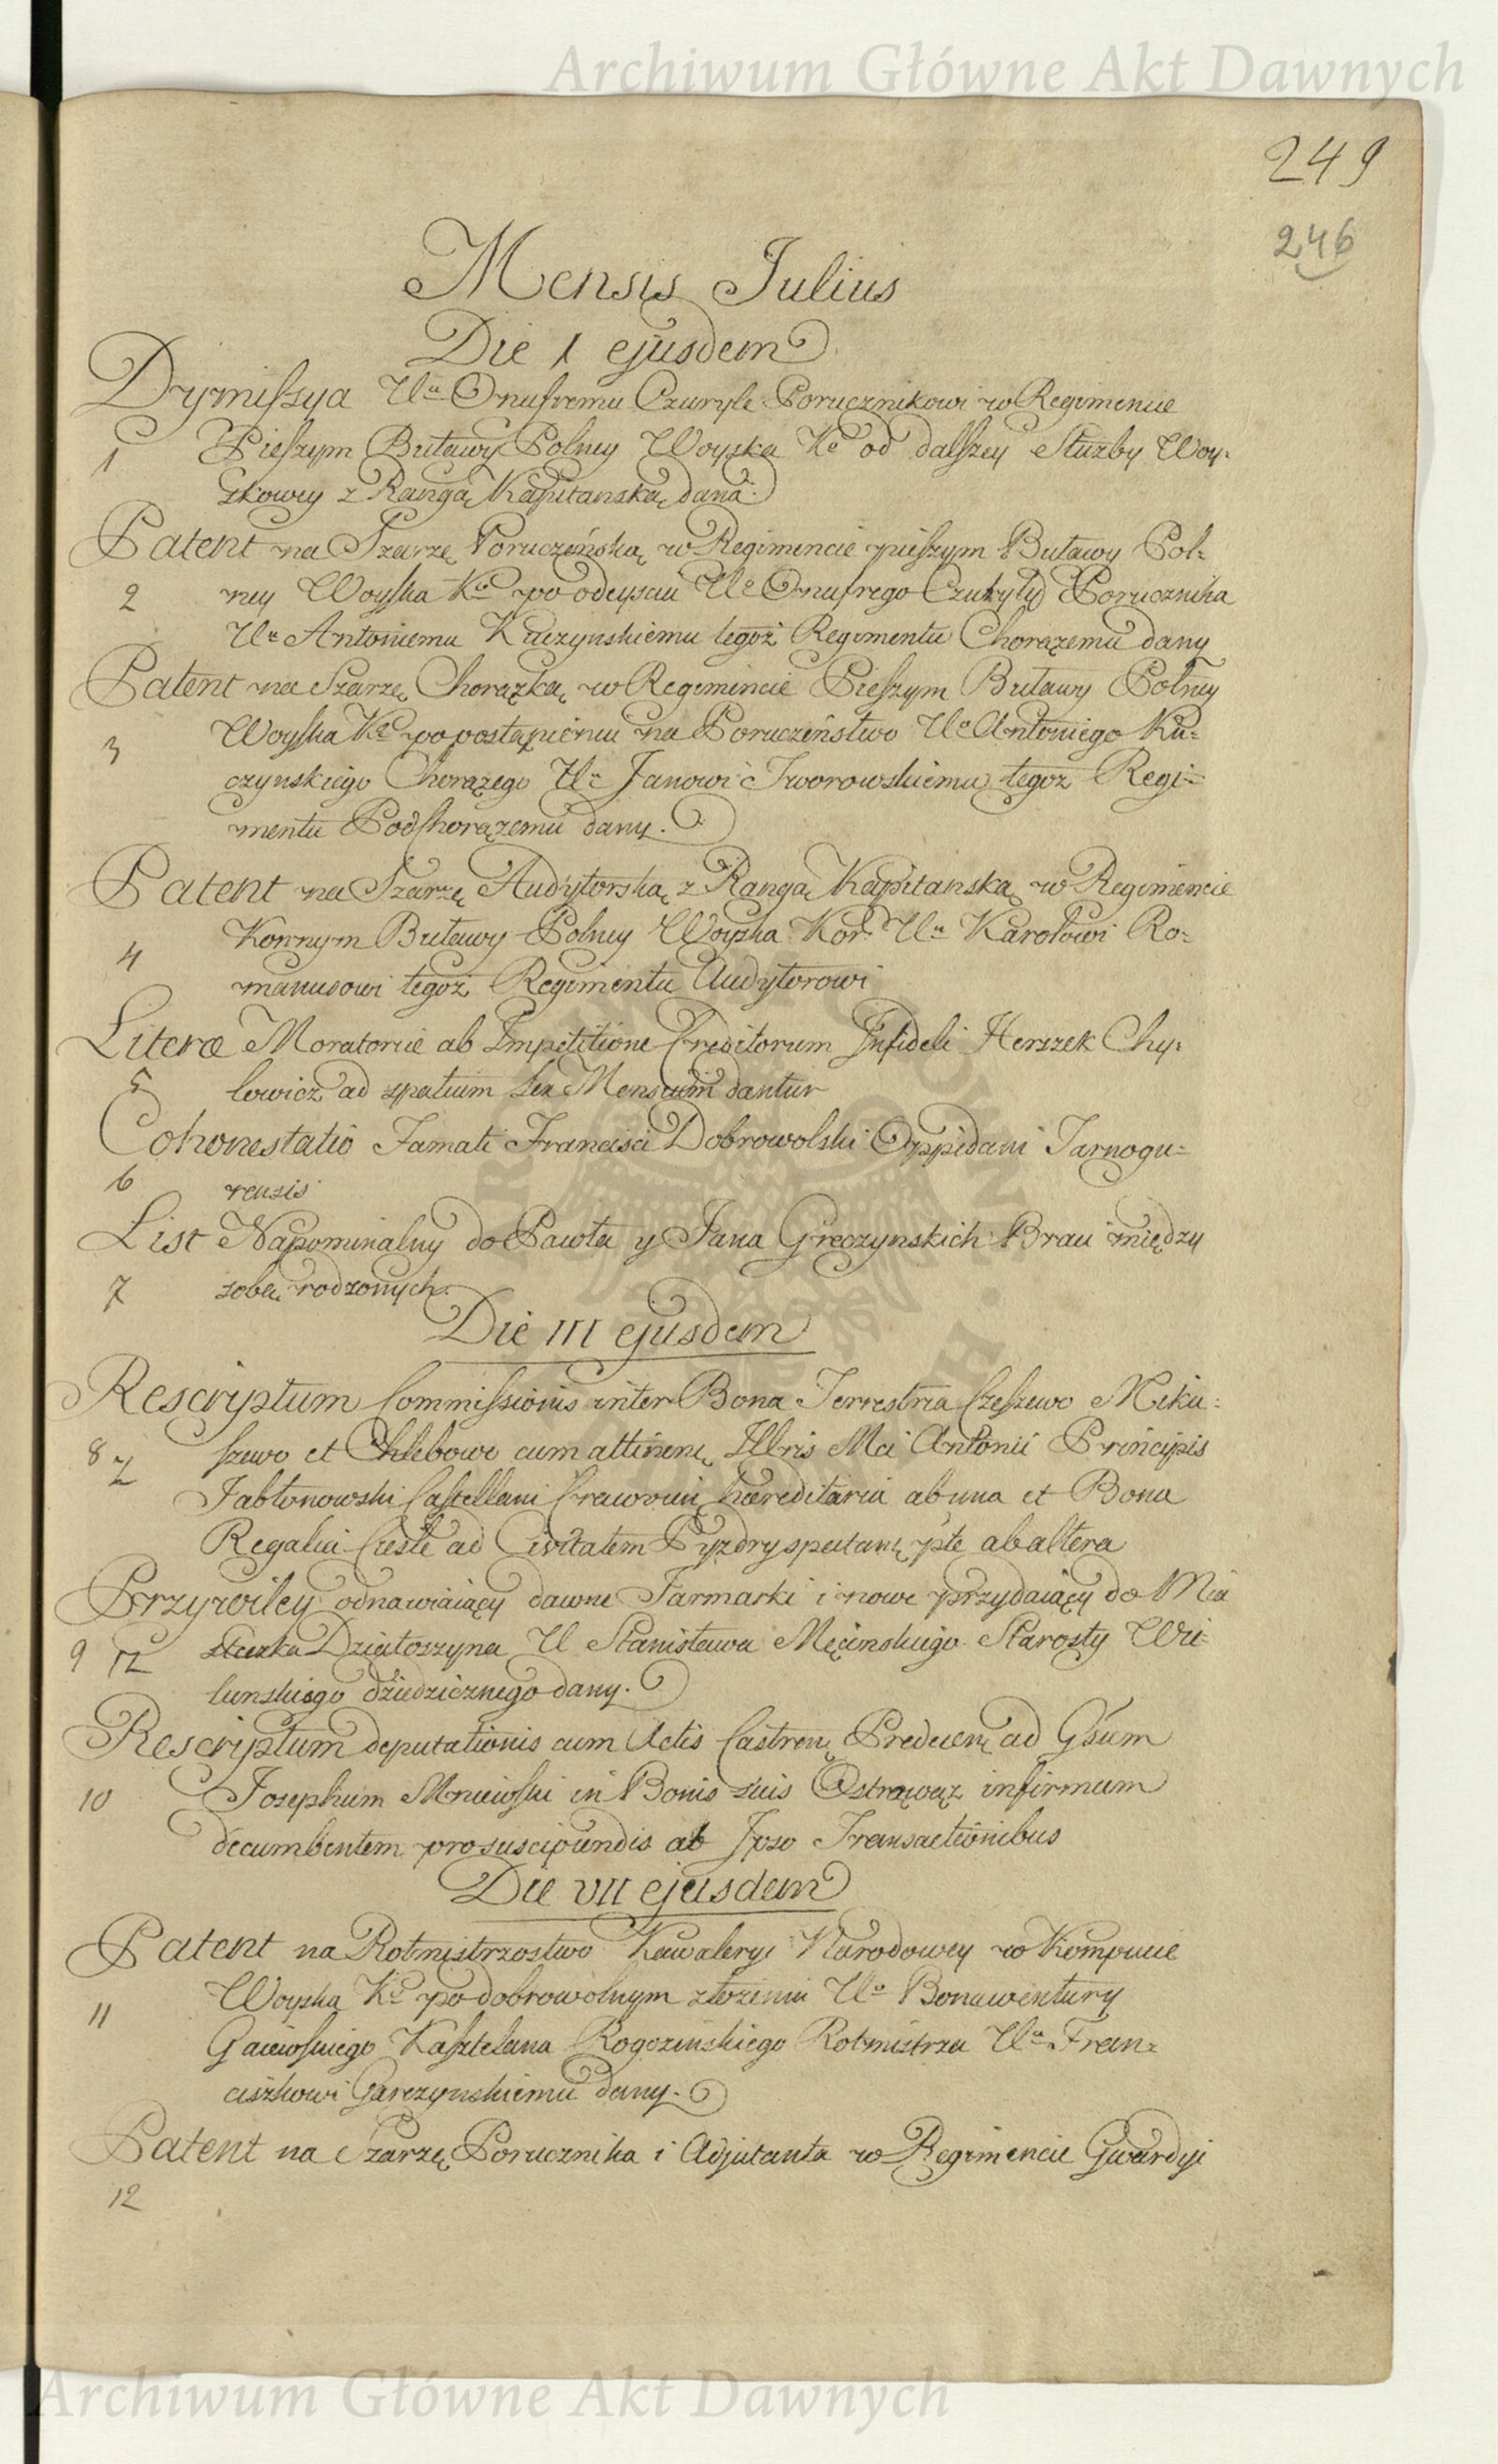 Archiwum Główne Akt Dawnych
249
246
Mensis Julius
Die 1 ejusdem
Dymissya Uu Onufremu Czuryle Porucznikowi w Regimencie
1 Pieszym Buławy Polney Woyska Ko od dalszey Służby Woy-
skowey z Rangą Kapitanską dana.
Patent na Szarzę Poruczeńską w Regimencie pieszym Buławy Pol-
2 ney Woyska Ko po odeysciu Uo Onufrego Czuryły Porucznika
Uu Antoniemu Kuczynskiemu tegoż Regimentu Chorązemu dany
Patent na Szarzę Chorązką w Regimincie Pieszym Buławy Polney
3 Woyska Ko po postąpieniu na Poruczeństwo Uo Antoniego Ku-
czynskiego Chorązego Uu Janowi Tworowskiemu tegoz Regi-
mentu Podchorązemu dany.
Patent na Szarzę Audytorską z Rangą Kapitanską w Regimencie
4 Konnym Buławy Polney Woyska Kor. Uu Karolowi Ro-
manusowi tegoż Regimentu Audytorowi
Literæ Moratoriæ ab Impetitione Creditorum Infideli Herszek Chy-
5 lowicz ad spatium sex Mensium dantur
Cohonestatio Famati Francisci Dobrowolski Oppidani Tarnogu-
6 rensis
List Napominalny do Pawła y Jana Greczynskich Braci między
7 sobą rodzonych.
Die III ejusdem
Rescriptum Commissionis inter Bona Terrestria Czeszewo Miku-
8 szewo et Chlebowo cum attinenę Illris Mci Antonii Principis
Jabłonowski Castellani Cracovien hæreditaria ab una et Bona
Regalia Cieśle ad Civitatem Pyzdry spectanę pte ab altera
Przywiley odnawiaiący dawne Jarmarki i nowe przydaiący do Mia
9 12 steczka Działoszyna U Stanisława Męcinskiego Starosty Wi-
lunskiego dziedzicznego dany.
Rescriptum deputationis cum Actis Castrenę Predecenę ad Gsum
10 Josephum Mniewski in Bonis suis Ostrąwąz infirmum
decumbentem pro suscipiendis ab Ipso Transactionibus
Die VII ejusdem
Patent na Rotmistrzostwo Kawaleryi Narodowey w Kompucie
11 Woyska Ko po dobrowolnym złozeniu Uo Bonawentury
Gaiewskiego Kasztelana Rogozinskiego Rotmistrza Uu Fran-
ciszkowi Garczynskiemu dany.
Patent na Szarzę Porucznika i Adjutanta w Regimencie Gwardyi
12
Archiwum Główne Akt Dawnych